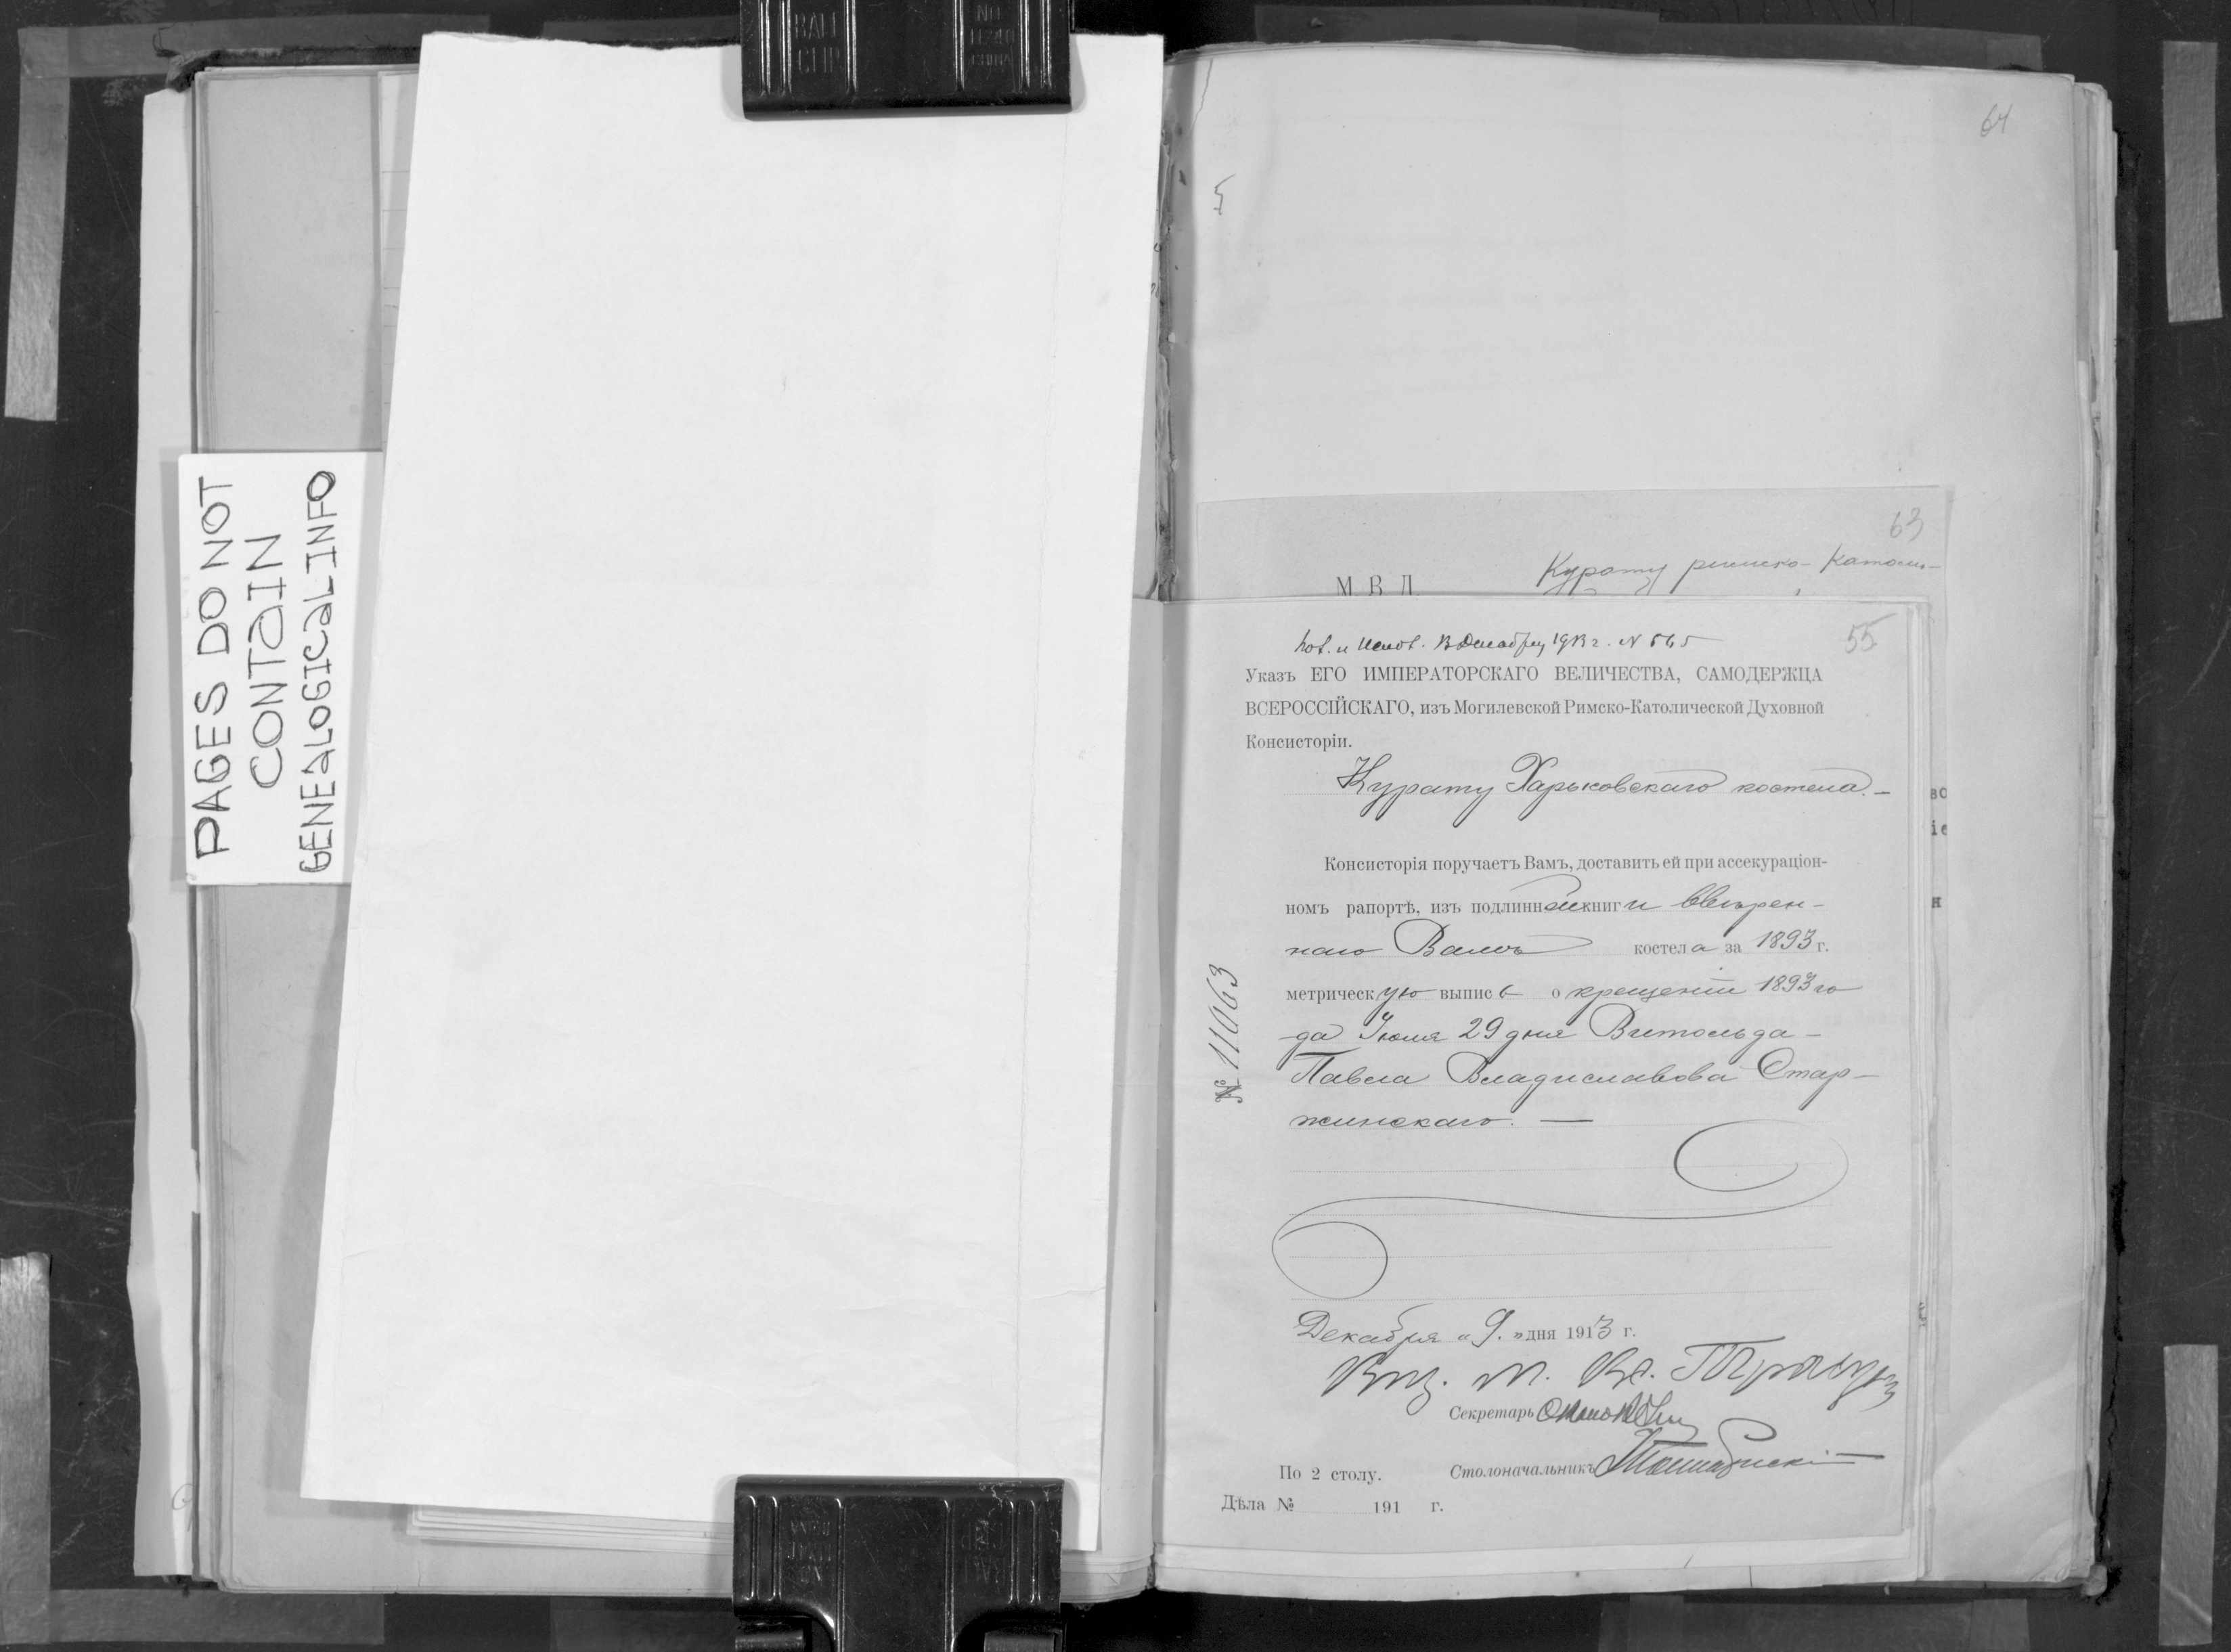 PAGES DO NOT
CONTAIN
GENEALOGICAL INFO
64
63
М В Д
Курату римско-католи-
55
1913 г. № 565
Указъ ЕГО ИМПЕРАТОРСКАГО ВЕЛИЧЕСТВА, САМОДЕРЖЦА
ВСЕРОССІЙСКАГО, изъ Могилевской Римско-Католической Духовной
Консисторіи.
Курату Харьковскаго костела.–
Консисторія поручаетъ Вамъ, доставить ей при ассекураціон-
номъ рапортѣ, изъ подлинной книги ввѣрен-
наго Вамъ костела за 1893 г.
метрическую выпись о крещеніи 1893 го
да Іюля 29 дня Витольда-
Павла Владиславова Стар-
жинскаго. —
№ 11063
Декабря „9.” дня 1913 г.
Секретарь
По 2 столу. Столоначальникъ
Дѣла № 191 г.